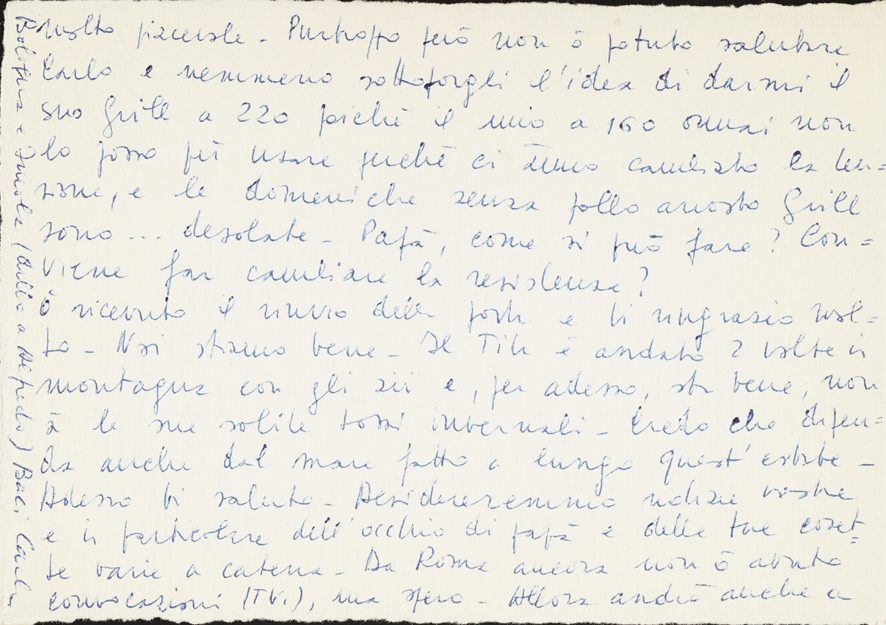 molto piacevole - Purtroppo però non ò potuto salutare
Carlo e nemmeno sottoporgli l'idea di darmi il
suo Grill a 220 pichè il mio a 160 ormai non
lo posso più usare perchè ci ànno cambiato la ten=
sione, e le domeniche senza pollo arrosto Grill
sono ... desolate - Papà, come si può fare? Con=
viene far cambiare la resistenza?
ò ricevuto il rinvio della posta e ti ringrazio mol=
to - Noi stiamo bene - Il Titti è andato 2 volte in
montagna con gli zii e, per adesso, sta bene, non
à le sue solite tossi invernali - Credo che dipen=
da anche dal mare fatto a lungo quest'estate -
Adesso ti saluto - Desidereremmo notizie vostre
e in particolare dell'occhio di papà e delle tue coset=
te varie a catena - Da Roma ancora non ò avuto
convocazioni (TV.), ma spero - Allora andrò anche a
Bologna e Imola (dillo a Alfredo) Baci Carla